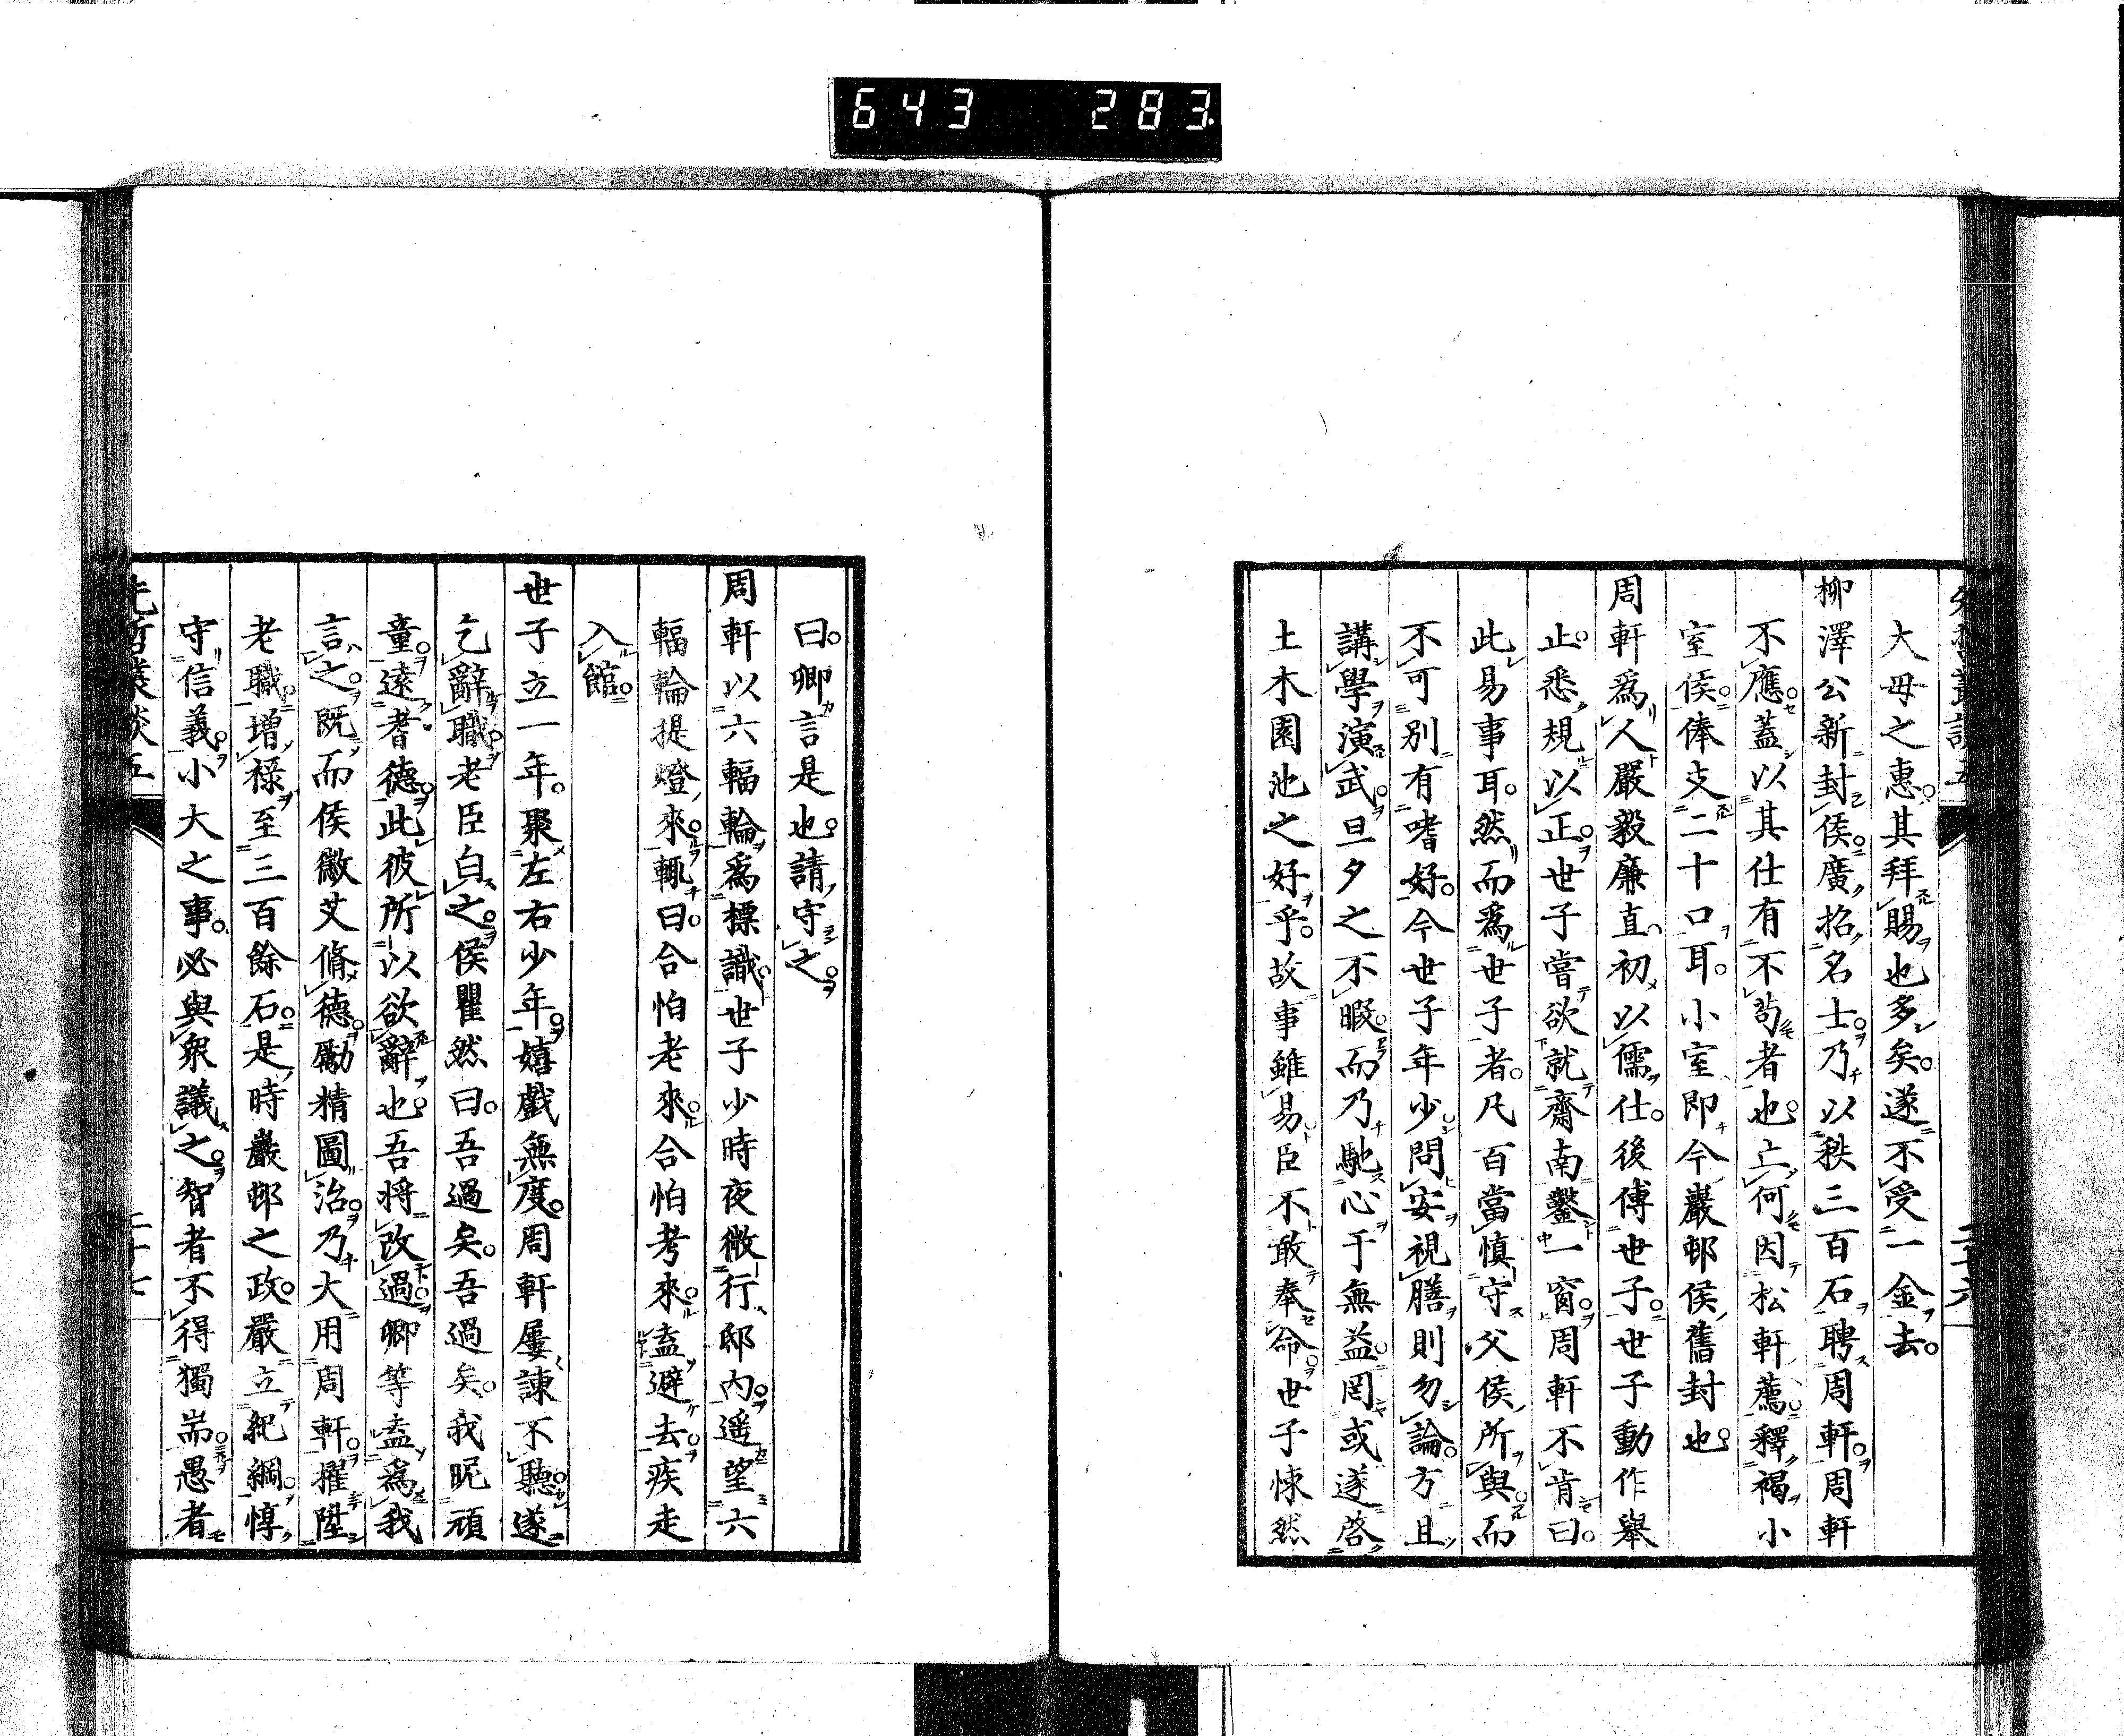 643 283
大母之惠。其拜賜也多矣。遂不受一金去。
柳澤公新封侯。廣招名士。乃以秩三百石聘周軒。周軒
不應。蓋以其仕有不苟者也。亡何因松軒薦。釋褐小
室侯。俸支二十口耳。小室即今巖邨侯舊封也。
周軒爲人嚴毅廉直。初以儒仕。後傅世子。世子動作舉
止。悉規以正。世子嘗欲就齋南鑿一窗。周軒不肯曰。
此易事耳。然而爲世子者。凡百當慎守父侯所與。而
不可別有嗜好。今世子年少。問安視膳則勿論。方且
講學演武。旦夕之不暇。而乃馳心于無益。罔或遂啓
土木園池之好乎。故事雖易。臣不敢奉命。世子悚然
曰。卿言是也。請守之。
周軒以六輻輪爲標識。世子少時夜微行邸內。遥望六
輻輪提燈來。輒曰。合怕老來。合怕考來。盍避去。疾走
入館。
世子立一年。聚左右少年。嬉戲無度。周軒屢諫不聽。遂
乞辭職。老臣白之。侯瞿然曰。吾過矣。吾過矣。我昵頑
童。遠耆德。此彼所以欲辭也。吾將改過。卿等盍爲我
言之。既而侯微艾脩德。勵精圖治。乃大用周軒。擢陞
老職。增祿至三百餘石。是時巖邨之政。嚴立紀綱。惇
守信義。小大之事。必與衆議之。智者不得獨耑。愚者
先哲叢談五
二十七